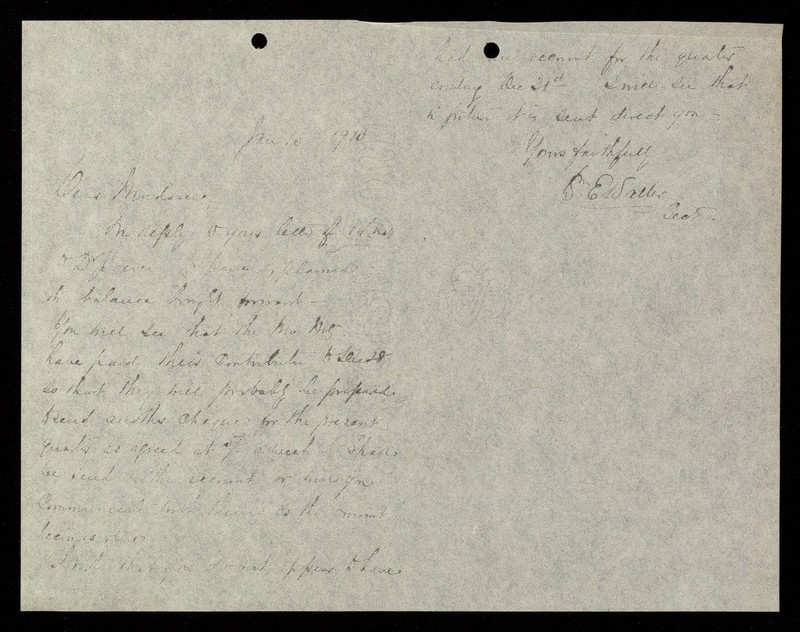 Jan 1910
Dear Madam
In reply to your letter of
I have explained
the balance brought forward -
You will see that the
have paid their Contribution to Dec 28
so that they will probably be prepared
to send another cheque for the present
quarter as agreed at
be send the account or will you
Communicate with them as the amount
becomes due
I note that you do not appear to have
had an account for the quarter
ending Dec 31st I will see that
in future it is sent direct you -
Yours faithfully
E Waller
Secty.